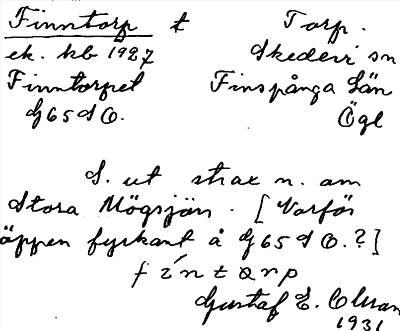 Finntorp t Torp.
ek. kb 1927 Skedevi sn
Finntorpet Finspånga Län
G65SO. Ögl
S. ut strax n. om
Stora Mögsjön. [Varför
öppen fyrkant å G65SO.?]
Gustaf E. Olsson
1931